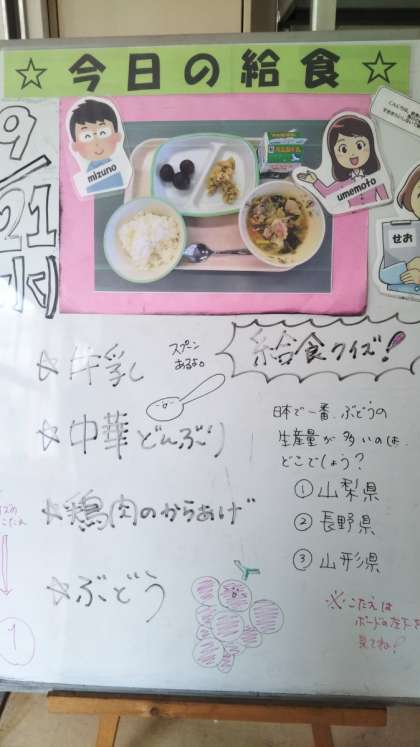 ☆ 今日の給食 ☆
9
21
水
mizuno
umemoto
せお
☆牛乳
スプーン
あるよ。
☆中華どんぶり
☆鶏肉のからあげ
☆ぶどう
給食クイズ!
日本で一番、ぶどうの
生産量が多いのは、
どこでしょう?
①山梨県
②長野県
③山形県
※こたえは
ボードの左下を
見てね!
1